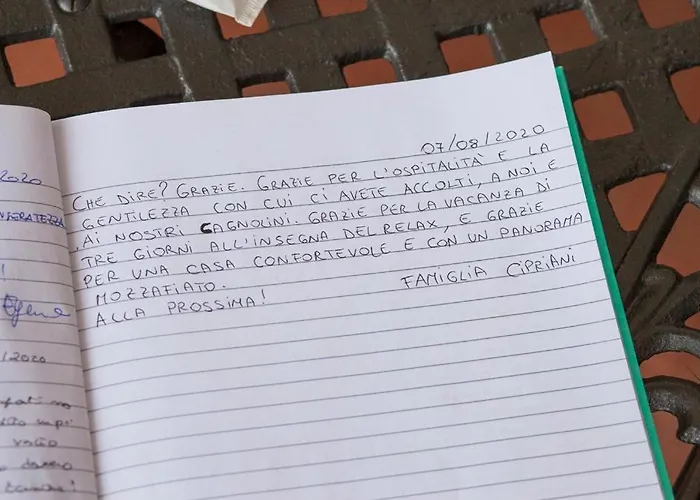 07/08/2020
CHE DIRE? GRAZIE. GRAZIE PER L'OSPITALITÀ E LA
GENTILEZZA CON CUI CI AVETE ACCOLTI, A NOI E
AI NOSTRI CAGNOLINI. GRAZIE PER LA VACANZA DI
TRE GIORNI ALL'INSEGNA DEL RELAX, E GRAZIE
PER UNA CASA CONFORTEVOLE E CON UN PANORAMA
MOZZAFIATO.
ALLA PROSSIMA!
FAMIGLIA CIPRIANI
2020
/2020